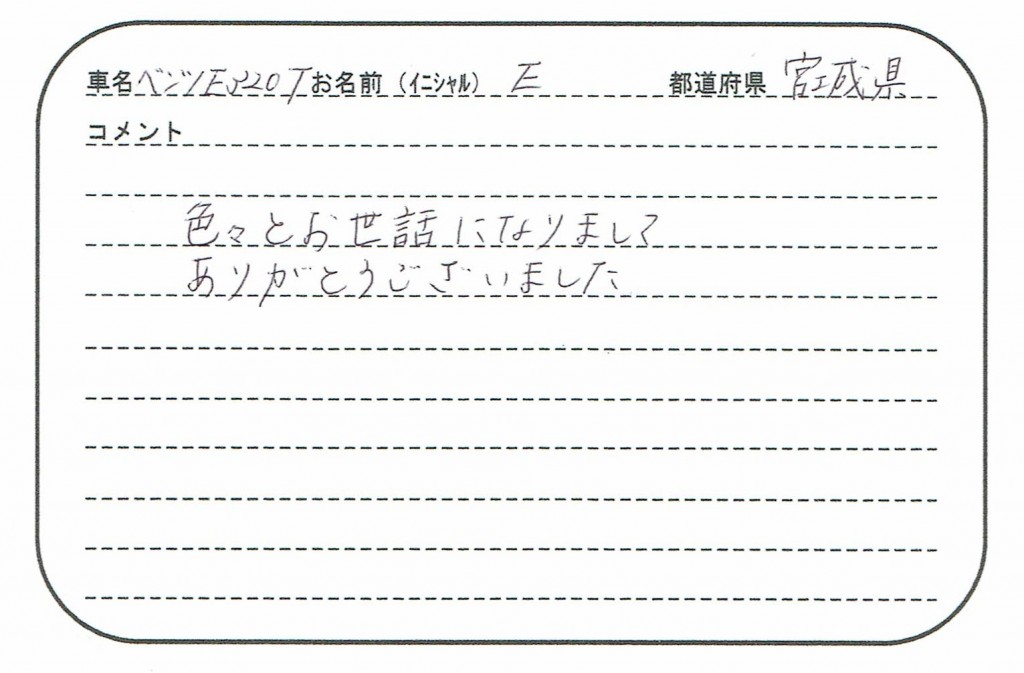 車名 ベンツE320T お名前（イニシャル） E 都道府県 宮城県
コメント
色々とお世話になりまして
ありがとうございました